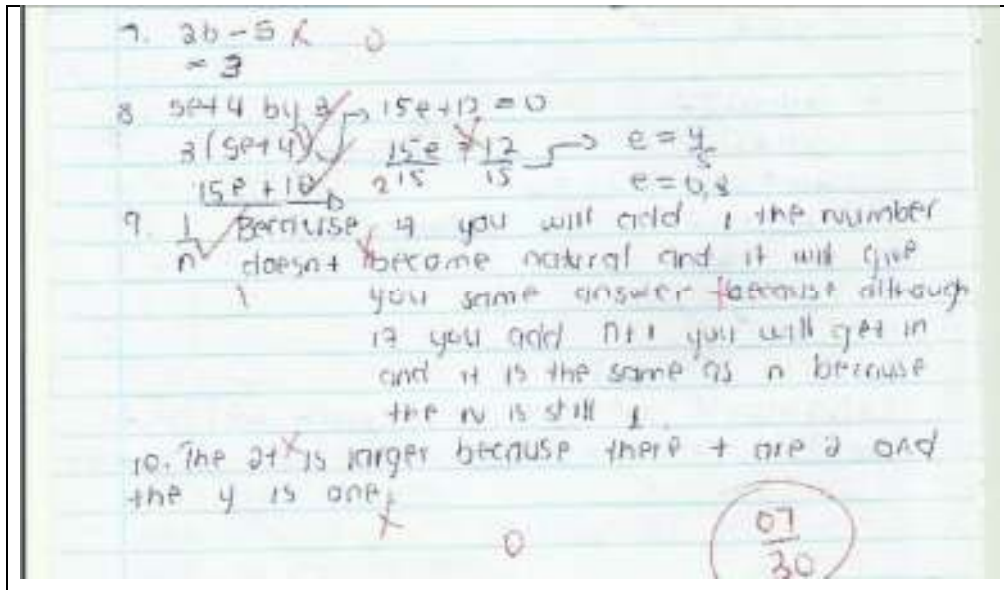 7. 2b - 5 0
= 3
8 5e+4 by 3 → 15e+12 = 0
3(5e+4) 15e 12 → e = 4/5
15e + 12 2 15 15 e = 0,8
9. 1/n Because, if you will add 1 the number
doesnt become natural and it will give
1 you same answer because although
if you add n+1 you will get 1n
and it is the same as n because
the n is still 1.
10. The 2t is larger because there t are 2 and
the y is one.
0
07/30